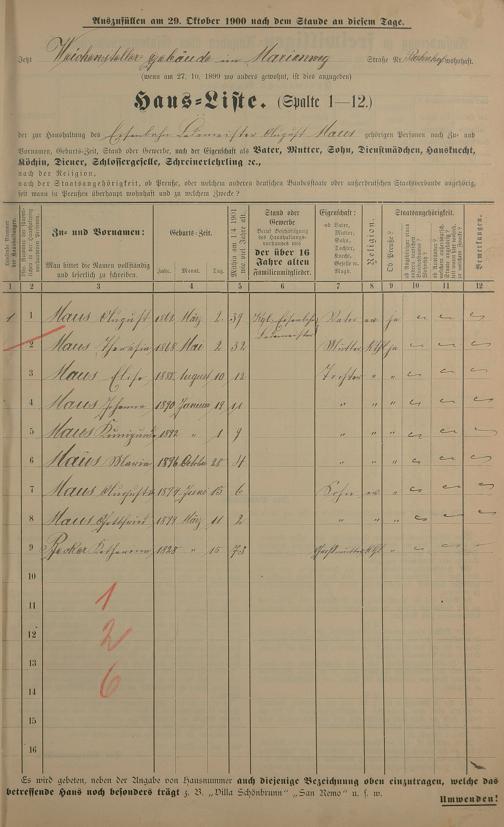 Auszufüllen am 29. Oktober 1900 nach dem Stande an diesem Tage.
Jetzt Weichensteller gebäude im Marienweg Straße Nr. Bahnhof wohnhaft.
(wenn am 27. 10. 1899 wo anders gewohnt, ist dies anzugeben)
Haus-Liste. (Spalte 1—12.)
der zur Haushaltung des Eisenbahn August Maus gehörigen Personen nach Zu- und
Vornamen, Geburts-Zeit, Stand oder Gewerbe, nach der Eigenschaft als Vater, Mutter, Sohn, Dienstmädchen, Hausknecht,
Köchin, Diener, Schlossergeselle, Schreinerlehrling ec.,
nach der Religion,
nach der Staatsangehörigkeit, ob Preuße, oder welchem anderen deutschen Bundesstaate oder außerdeutschen Staatsverbande angehörig,
seit wann in Preußen überhaupt wohnhaft und zu welchem Zwecke?
Zu- und Vornamen:
Man bittet die Namen vollständig und leserlich zu schreiben.
Geburts-Zeit.
Jahr. Monat. Tag.
Mithin am 1.4.1901 wie viel Jahre alt.
Stand oder Gewerbe
der über 16 Jahre alten Familienmitglieder.
Eigenschaft:
ob Vater, Mutter, Sohn, Tochter, Köchin, Geselle rc. Magd.
Religion.
Staatsangehörigkeit.
Ob Preuße?
Bemerkungen.
1 2 3 4 5 6 7 8 9 10 11 12
1 1 Maus August 1861 März 2 39 Kgl. Eisenbahn Vater ev ja
2 Maus 1868 Mai 2 32 Mutter kth ja
3 Maus Elise 1888 August 10 12 Tochter " "
4 Maus Johanna 1890 Januar 19 11 " " "
5 Maus Kunigunde 1892 " 1 9 " " "
6 Maus Maria 1896 Octobr 28 4 " " "
7 Maus 1894 Juni 13 6 Sohn ev "
8 Maus Gottfried 1899 März 11 2 " " "
9 Becker Katharina 1828 " 15 73 Großmutter kth "
10
11
12
13
14
15
16
1
2
6
Es wird gebeten, neben der Angabe von Hausnummer auch diejenige Bezeichnung oben einzutragen, welche das
betreffende Haus noch besonders trägt z. B. „Villa Schönbrunn" „San Remo" u. s. w.
Umwenden!